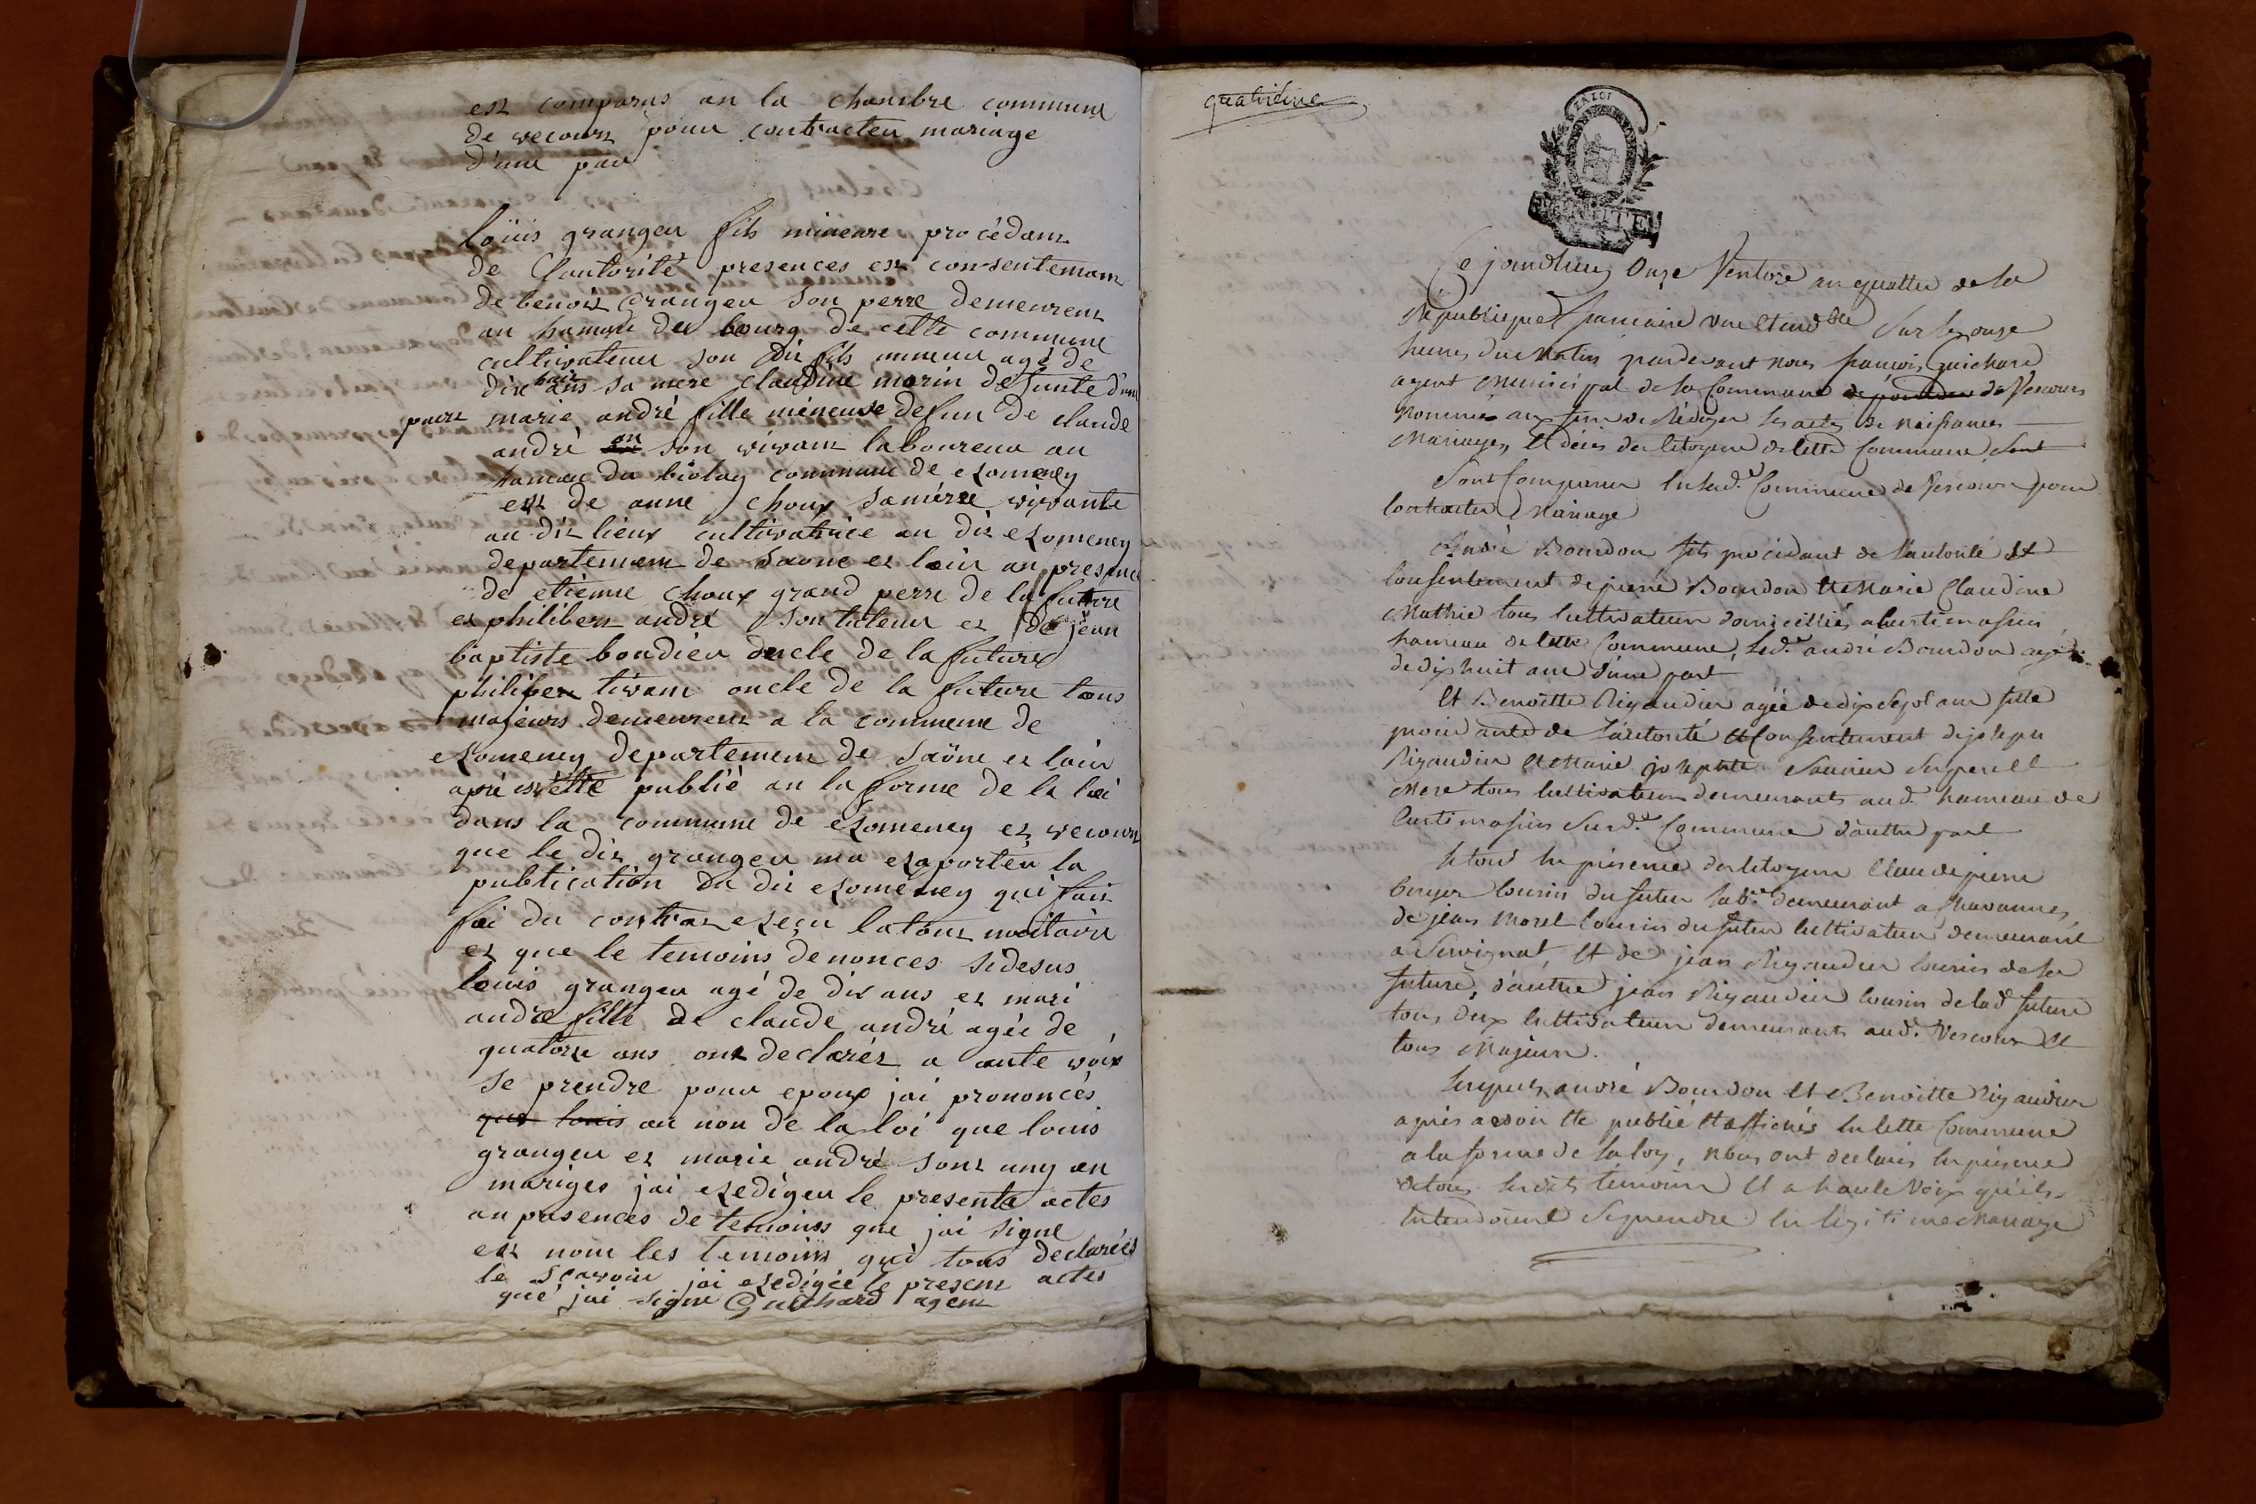 est comparus an la chambre commune
de vecours pour contracter mariage
d'une par
loüis granger fils mineure procédam
de lautorité presences est consentemam
de benois Granger son perre demeurent
au hamau du bourg de cette commune
cultivateur son dis fils mineur agé de
dix huit ans sa mere claudine morin defunte d'une
part marie andré fille méneure defun de claude
andré en son vivant laboureur au
hamau du biolay commune de romeney
est de anne choux sa mére vivante
au dis lieux cultivatrice au dis romeney
departemem de Saone et loir an presence
de etienne choux grand perre de la future
et philiber andré son tuteur et de jean
baptiste boudier oncle de la future
philiber tivam oncle de la future tous
majeurs demeurent a la commune de
romeney departemem de Saône et loir
apré avoir étté publié an la forme de la loi
dans la commune de romeney et vecours
que le dis granger ma raporter la
publication du dis romeney qui fait
foi du contrat reçu latour notaire
et que le temoins denonces sidesus
louis granger agé de dix ans et mari
andre fille de claude andré agée de
quatorze ans ont declarér a aute voix
se prendre pour epoux jai prononcés
que louis au non de la loi que louis
granger et marie andré sont uny an
mariges jai rediger le presenta actes
an presences de temoins que jai signe
est nom les temoins qui tous declarées
le scavoir jai redigée le present actes
que jai signe Guichard agent
quatrième
LA LOI
Ce jourdhuy Onze Ventose an quatre de la
Republique francaise une et indble Sur les onze
heures du matin pardevant nous francois Guichard
agent municipal de la Commune de Vescours
nommé aux fins de Rediger les actes de naissances
Mariages, et décès des citoyens de cette Commune sont
Sont Comparus en lad. Commune de Vescours pour
contracter Mariage
André Bourdon fils procédant de l'autorité et
consentement de pierre Bourdon et Marie Claudine
Mathie tous cultivateurs domiciliés a curtimassin
hameau de cette Commune, led. andré Bourdon agé
de dix huit ans d'une part
Et Benoitte Rigaudier agée de dix sept ans fille
procédante de l'autorité et Consentement de joseph
Rigaudier et Marie josephte Saunier Ses pere et
Mere tous cultivateurs demeurants aud. hameau de
Curtimassin Surd. Commune d'autre part
Le tout en présence des citoyens Claude pierre
Cousin du futur labr. demeurant a Chavannes,
de jean Morel Cousin du futur Cultivateur demeurant
a Servignat, et de jean Rigaudier Cousin de la
future, d'autre jean Rigaudier Cousin de lad. future
tous deux Cultivateurs demeurants aud. Vescours et
tous Majeurs.
Lesquels andré Bourdon et Benoitte Rigaudier
après avoir été publié et affichés en cette Commune
a la forme de la loy, Nous ont declarés en présence
de tous lesdits témoins et a haute Voix qu'ils
Entendoient Se prendre en légitime mariage